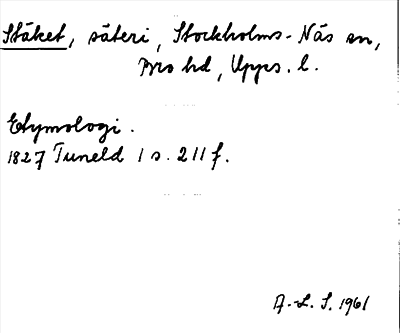 Stäket, säteri, Stockholms-Näs sn,
Bro hd, Upps. l.
Etymologi.
1827 Tuneld I s. 211 f.
A.-L. S. 1961